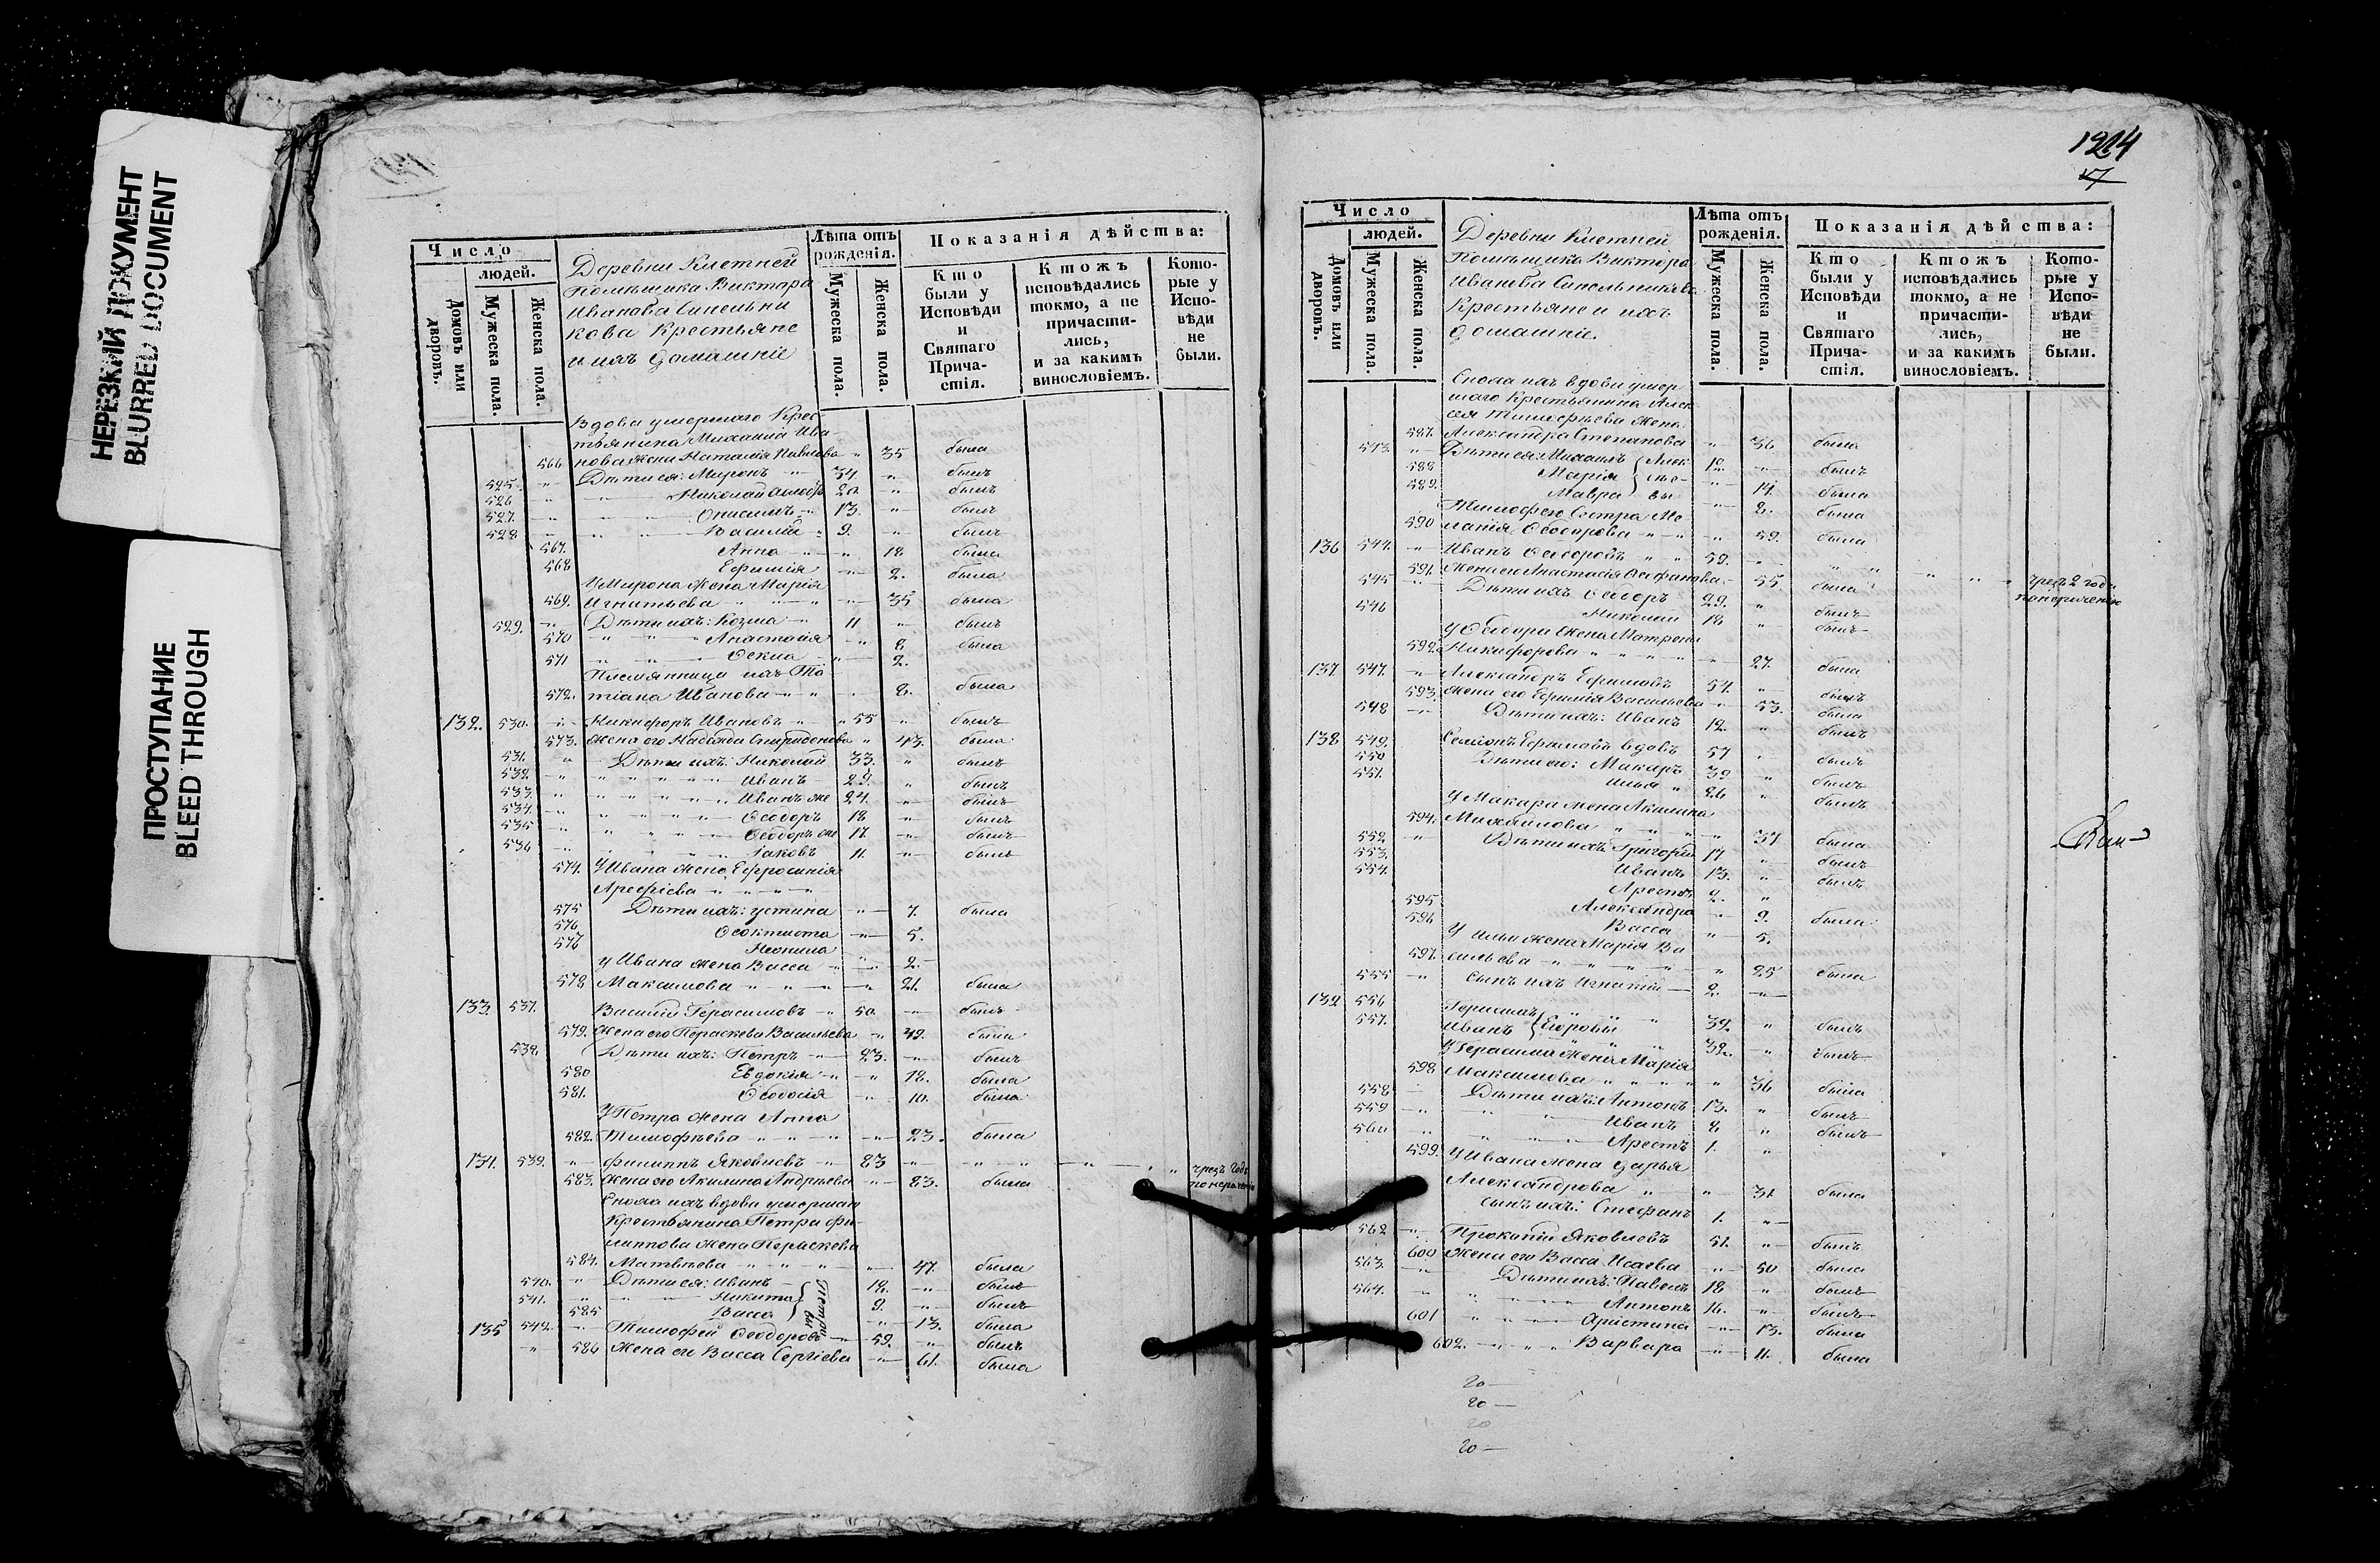 НЕРЕЗКИЙ ДОКУМЕНТ
BLURRED DOCUMENT
ПРОСТУПАНИЕ
BLEED THROUGH
Число
людей.
Домовъ или дворовъ.
Мужеска пола.
Женска пола.
Деревни Клетней
Помѣщика Виктора
Иванова Синельни
кова Крестьяне
и ихъ домашніе
Лѣта отъ рожденія.
Мужеска пола.
Женска пола.
Показанія дѣйства:
Кто были у Исповѣди и Святаго Причастія.
Ктожъ исповѣдались токмо, а не причастились, и за какимъ винословіемъ.
Которые у Исповѣди не были.
Вдова умершаго Крес
тьянина Михаила Ива
566 нова жена Наталія Павлова " 35 была
525 " Дѣти ея: Миронъ 34 " былъ
526 Николай 20 " былъ
527. Онисимъ 13. " былъ
528 Василій 9. " былъ
567. Анна 18 была
568 Ефимія 2. была
У Мирона жена Марія
569. Игнатьева 35 была
529. Дѣти ихъ: Козма 11 " былъ
570 Анастасія 8 была
571 Ѳекла 2.
Племянница ихъ Та
572. тіана Иванова 8. была
132. 530. Никифоръ Ивановъ 55 " былъ
573. Жена его Надежда Спиридонова 43. была
531. Дѣти ихъ: Николай 33. " былъ
532. Иванъ 29. " былъ
533. Иванъ же 24. былъ
534. Ѳеодоръ 18 былъ
535 Ѳеодоръ же 17. былъ
536 Іаковъ 11. былъ
574. У Ивана жена Ефросинія
Арефіева
575 Дѣти ихъ: Устина 7. была
576 Ѳеоктиста 5.
576 Неонила 2.
У Ивана жена Васса
578 Максимова 21. была
133. 537. Василій Герасимовъ 50. былъ
579. Жена его Параскева Васильева 49. была
538. Дѣти ихъ: Петръ 23. былъ
580 Евдокія 18. была
581. Ѳеодосія 10. была
У Петра жена Анна
582. Тимофѣева 23. была
134. 539. Филиппъ Яковлевъ 83
583. Жена его Акилина Андрѣева 83. была
Сноха ихъ вдова умершаго
Крестьянина Петра Фи
липпова жена Параскева
584. Матвѣева 47. была
540. Дѣти ея: Иванъ 18. былъ
541. Никита 9. былъ
585 Васса 13. была
Петровы
135 542. Тимофей Ѳеодоровъ 59. былъ
586 Жена его Васса Сергіева 61. была
1214
Число
людей.
Домовъ или дворовъ.
Мужеска пола.
Женска пола.
Деревни Клетней
Помѣщика Виктора
Иванова Синельникова
Крестьяне и ихъ
домашніе.
Лѣта отъ рожденія.
Мужеска пола.
Женска пола.
Показанія дѣйства:
Кто были у Исповѣди и Святаго Причастія.
Ктожъ исповѣдались токмо, а не причастились, и за какимъ винословіемъ.
Которые у Исповѣди не были.
Сноха ихъ вдова умер
шаго Крестьянина Алек
сѣя Тимофѣева жена
587. Александра Степанова 36 была
543. Дѣти ея: Михаилъ 12. былъ
588 Марія 14. была
589. Мавра 8. была
Тимофею Сестра Ме
590 ланія Ѳеодорова 59. была
136 544. Иванъ Ѳеодоровъ 59. чрезъ 2 года
591. Жена его Анастасія 55. была
545 Дѣти ихъ Ѳеодоръ 29. былъ
546 Николай 18 былъ
У Ѳеодора жена Матрона
592. Никифорова 27. была
137. 547. Александръ Ефимовъ 54. былъ
593. Жена его Ефимія Васильева 53. была
548 Дѣти ихъ: Иванъ 12. былъ
138 549. Семіонъ Ефимовъ вдовъ 57 былъ
550 Дѣти его: Макаръ 39 былъ
551. Илья 26 былъ
У Макара жена Акилина
594. Михайлова 37 была
552 Дѣти ихъ Григорій 17 былъ
553. Иванъ 13. былъ
554. Арестъ 2.
595 Александра 9. была
596 Васса 5.
У Ильи жена Марія Ва
597. сильева 25 была
555 Сынъ ихъ Игнатій 2.
139 556 Герасимъ 39. былъ
557. Иванъ 32. былъ
У Герасима жена Марія
598 Максимова 36 была
558 Дѣти ихъ: Антонъ 13. былъ
559 Иванъ 8 былъ
560 Арестъ 1.
599. У Ивана жена Дарья
Александрова 31 была
Сынъ ихъ: Стефанъ 1.
562 Прокопій Яковлевъ 51. былъ
600 Жена его Васса Исаева 50 была
563. Дѣти ихъ: Павелъ 18 былъ
564. Антонъ 16. былъ
601 Христина 13. была
602. Варвара 11. была
20
20
20
20